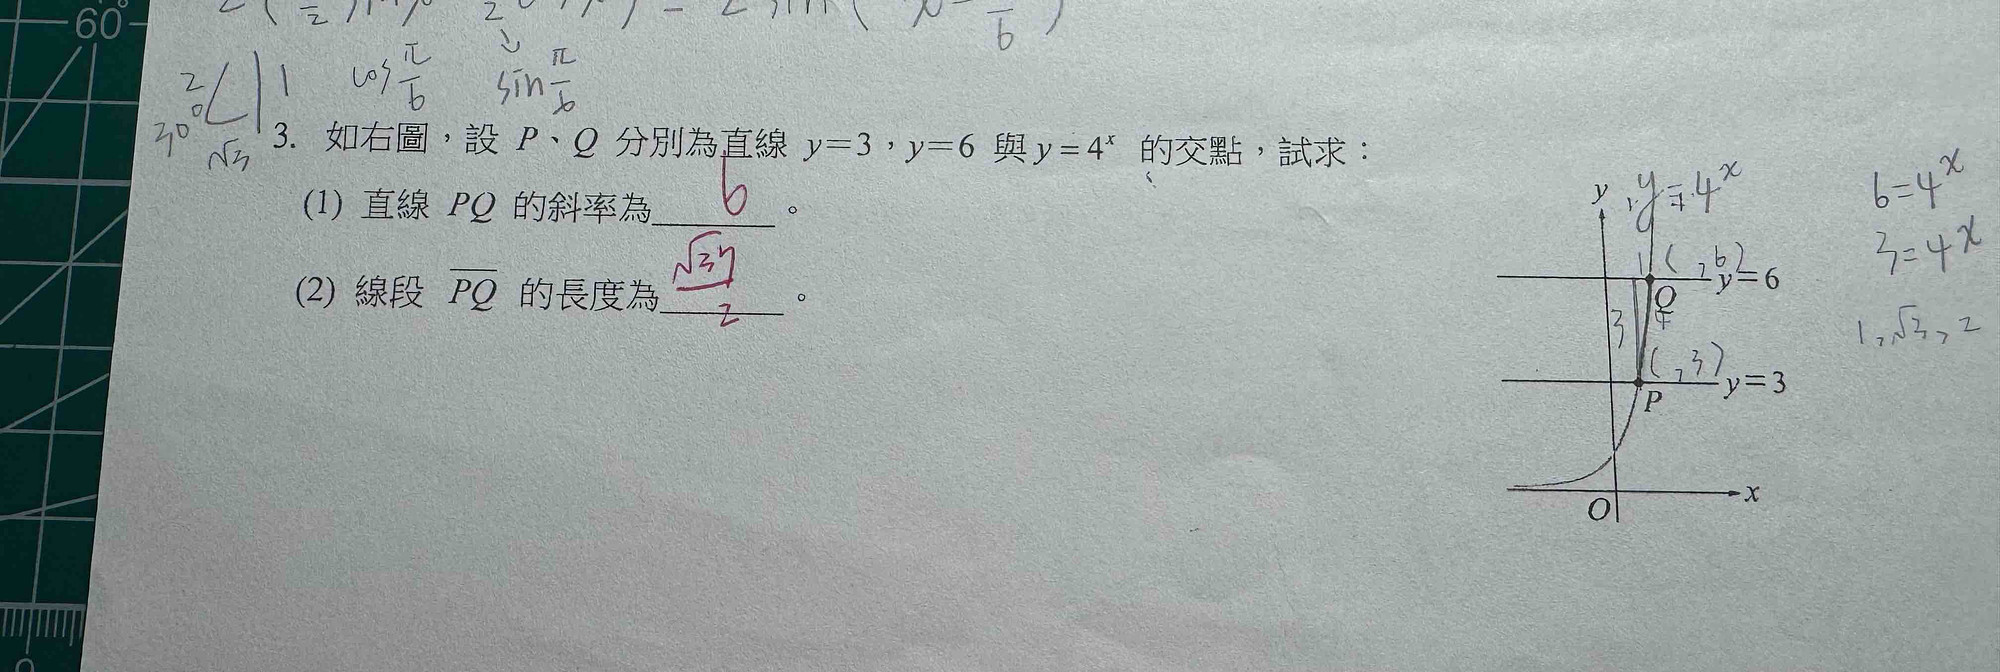 60°
2 30° 1 √3
cos π/6 sin π/6
3. 如右圖，設 P、Q 分別為直線 y=3，y=6 與 y=4ˣ 的交點，試求：
(1) 直線 PQ 的斜率為 6 。
(2) 線段 PQ 的長度為 √37/2 。
y y=4ˣ
( ,6) y=6
Q
3
( ,3) y=3
P
O x
6=4ˣ
3=4ˣ
1,√3,2
0